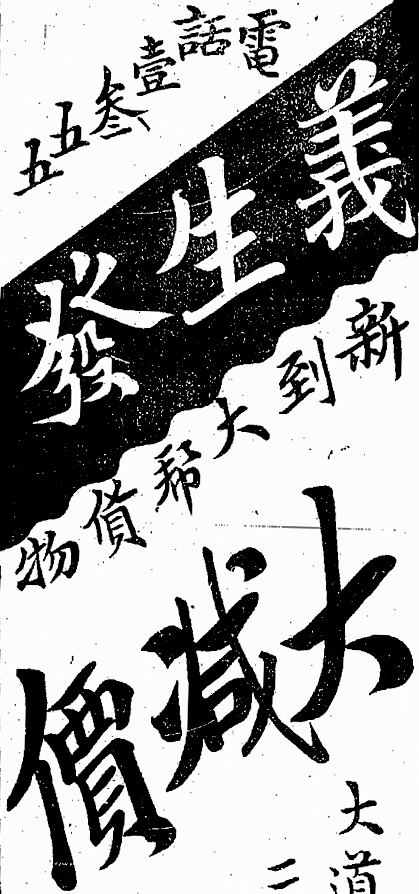 電話壹叁五五
義生發
新到大幫貨物
大減價
大道
二